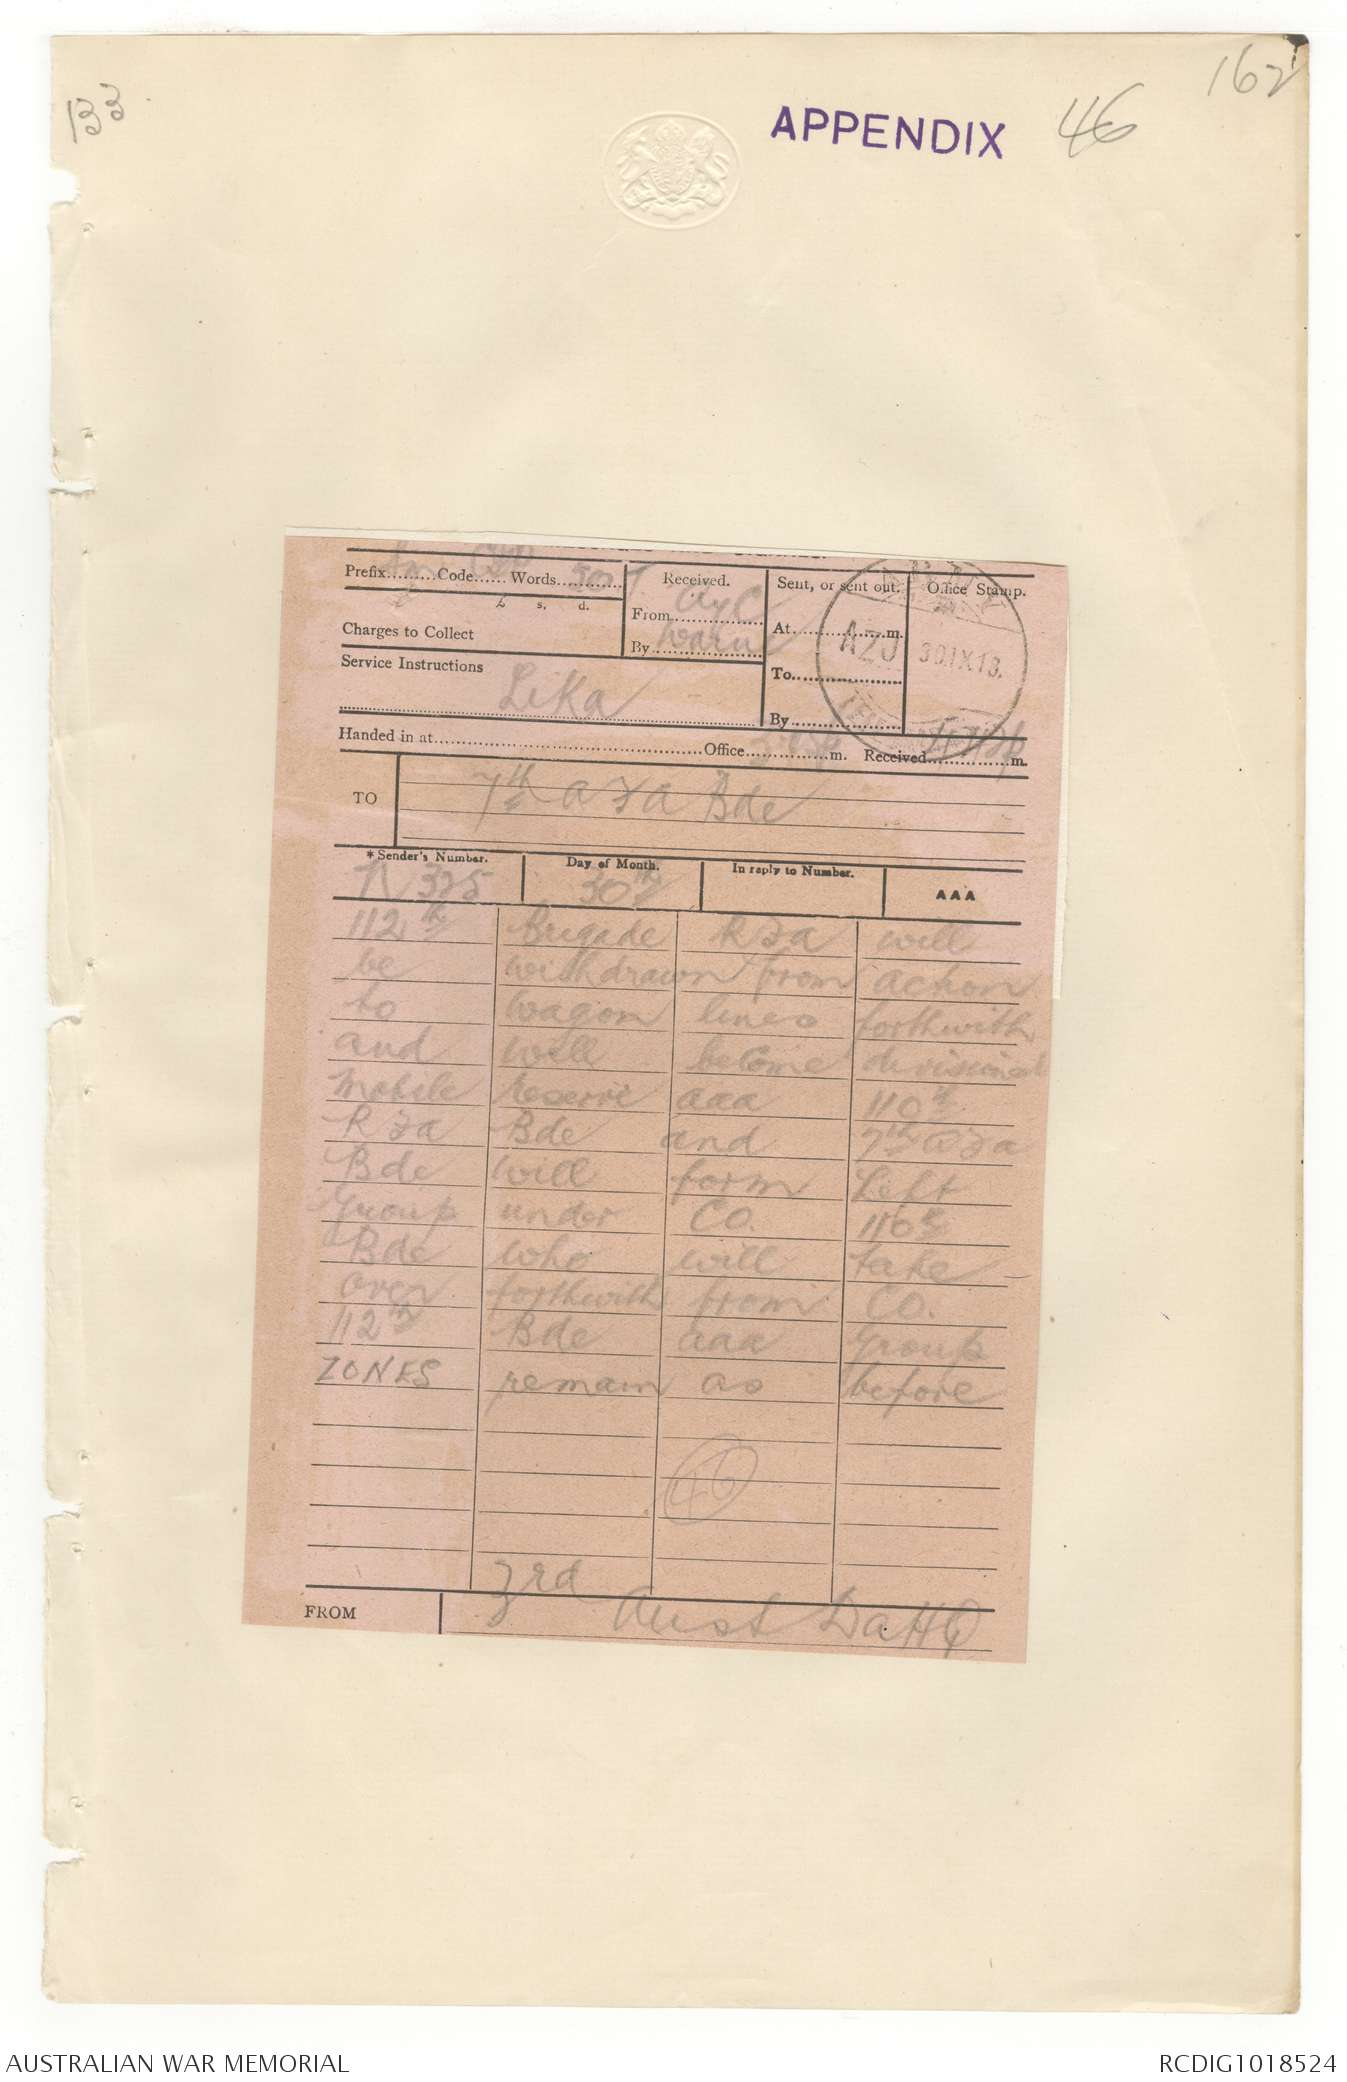 133
APPENDIX 46
162
Prefix.........Code......Words............ 50
£ s. d.
Charges to Collect
Received.
From AyC
By
Sent, or sent out.
At m.
To
By
Office Stamp.
AZJ 30.IX.18.
Service Instructions
LiKa
Handed in at Office m. Received m.
TO 7th AFA Bde
*Sender's Number. Day of Month. In reply to Number. AAA
325 30th
112th Brigade RFA will
be withdrawn from action
to wagon lines forthwith
and will become divisional
Mobile Reserve aaa 110th
RFA Bde and 7th AFA
Bde will form Left
Group under CO. 110th
Bde who will take
over forthwith from CO.
112th Bde aaa Group
ZONES remain as before
46
FROM 3rd Aust DaHQ
AUSTRALIAN WAR MEMORIAL
RCDIG1018524